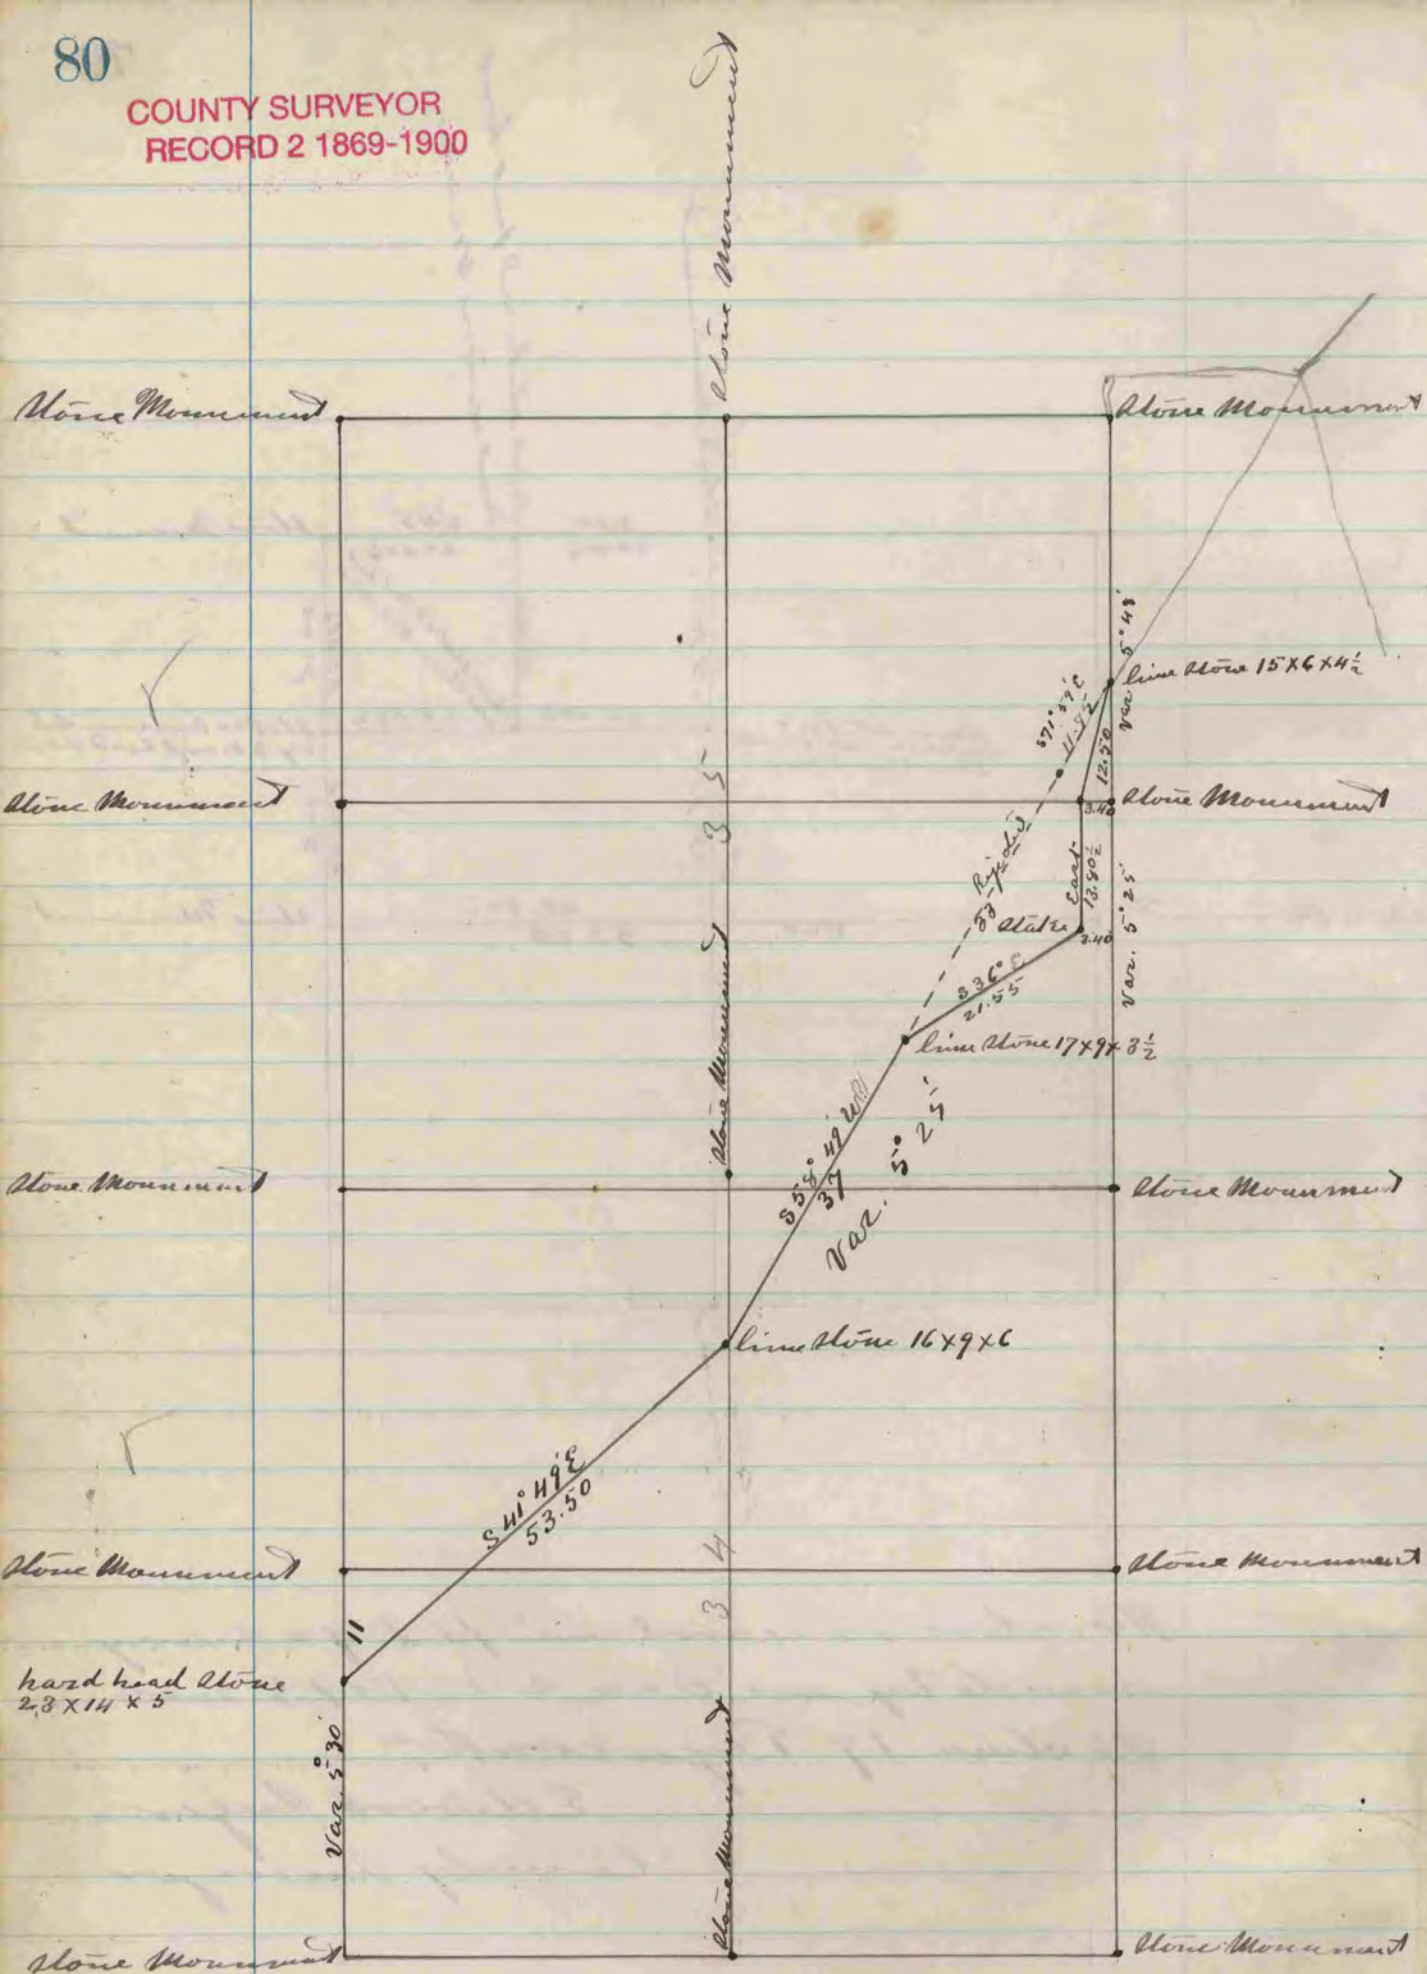 80
COUNTY SURVEYOR
RECORD 2 1869-1900
Stone Monument
Stone Monument
Stone Monument
Var. 5° 48'
lime stone 15 X 6 X 4 1/2
S71° 59' E
11.92
12.50
Stone Monument
35
3.40
Stone Monument
Rejected
East
13.90 1/2
Var. 5° 25'
Stake
3.40
S 36° E
21.55
Stone Monument
lime stone 17 X 9 X 3 1/2
S 58° 49'
37
Var. 5° 25'
Stone Monument
Stone Monument
lime stone 16 X 9 X 6
S 41° 49' E
53.50
34
Stone Monument
Stone Monument
11
hard head stone
23 X 14 X 5
Var. 5° 30'
Stone Monument
Stone Monument
Stone Monument